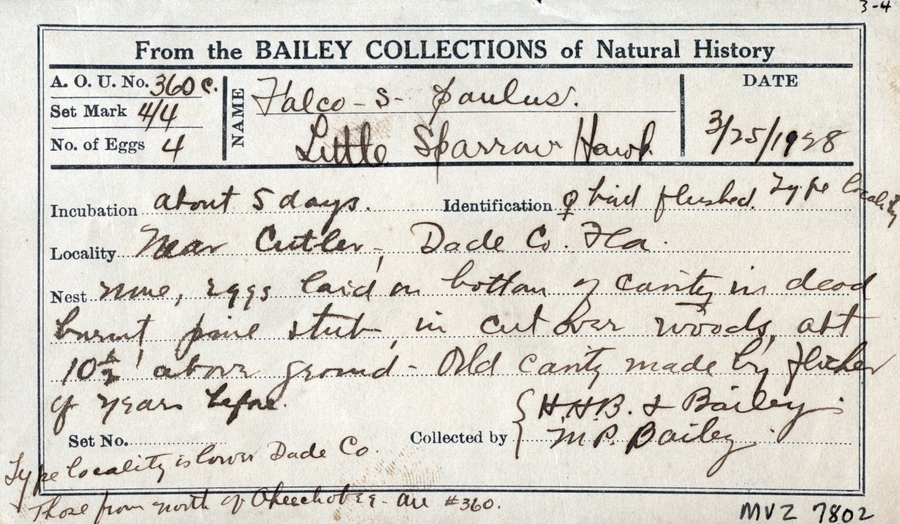 3-4
From the BAILEY COLLECTIONS of Natural History
A. O. U. No. 360 c.
Set Mark 4/4
No. of Eggs 4
NAME Falco - s - paulus.
Little Sparrow Hawk
DATE
3/25/1928
Incubation about 5 days. Identification ♀ bird flushed. Type locality
Locality Near Cutler, Dade Co. Fla.
Nest none, eggs laid on bottom of cavity in dead
burnt pine stub, in cut over woods, abt
10½' above ground - Old cavity made by flicker
of years before.
Set No.
Collected by { H.H.B. & Bailey
M.P. Bailey.
Type locality is lower Dade Co.
Those from north of Okeechobee - are #360.
MVZ 7802